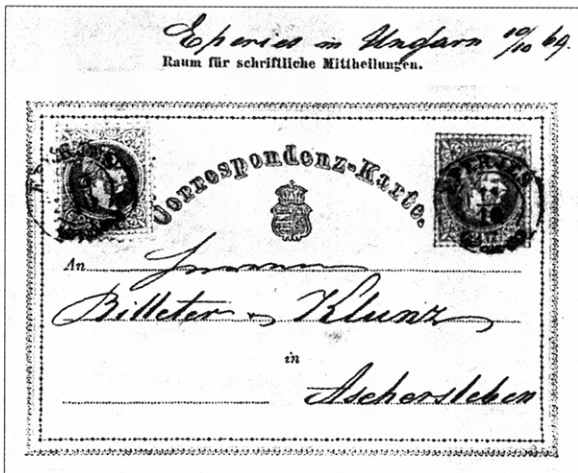 Eperies in Ungarn 10/10 69.
Raum für schriftliche Mittheilungen.
Correspondenz-Karte.
EPERIES
An
Billeter & Klunz
in
Aschersleben